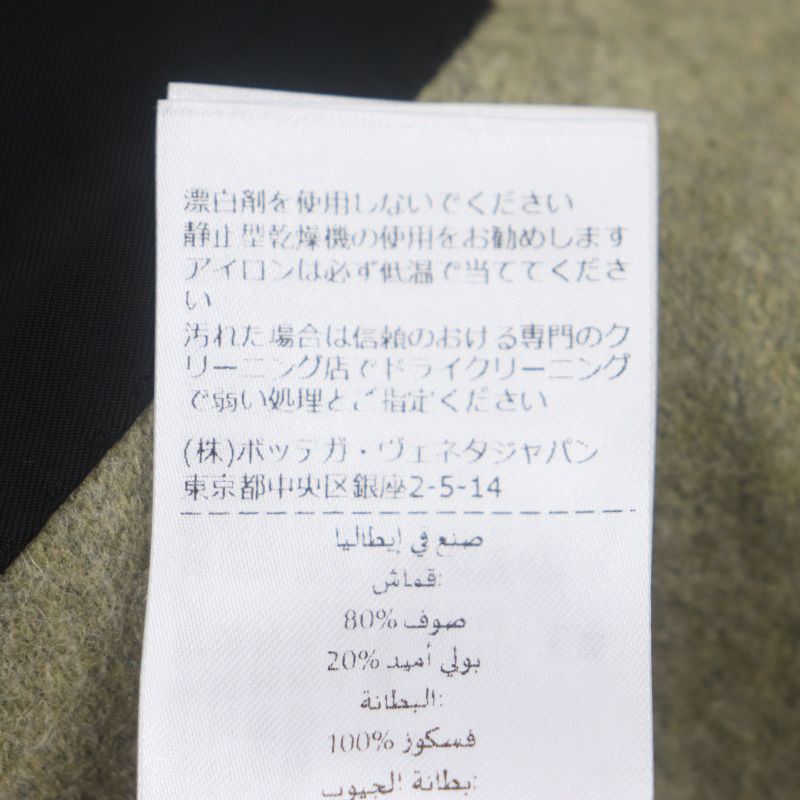 漂白剤を使用しないでください
静止型乾燥機の使用をお勧めします
アイロンは必ず低温で当ててくださ
い
汚れた場合は信頼のおける専門のク
リーニング店でドライクリーニング
で弱い処理とご指定ください
(株)ボッテガ・ヴェネタジャパン
東京都中央区銀座2-5-14
صنع في إيطاليا
قماش:
صوف %80
بولي أميد %20
البطانة:
فسكوز %100
بطانة الجيوب: